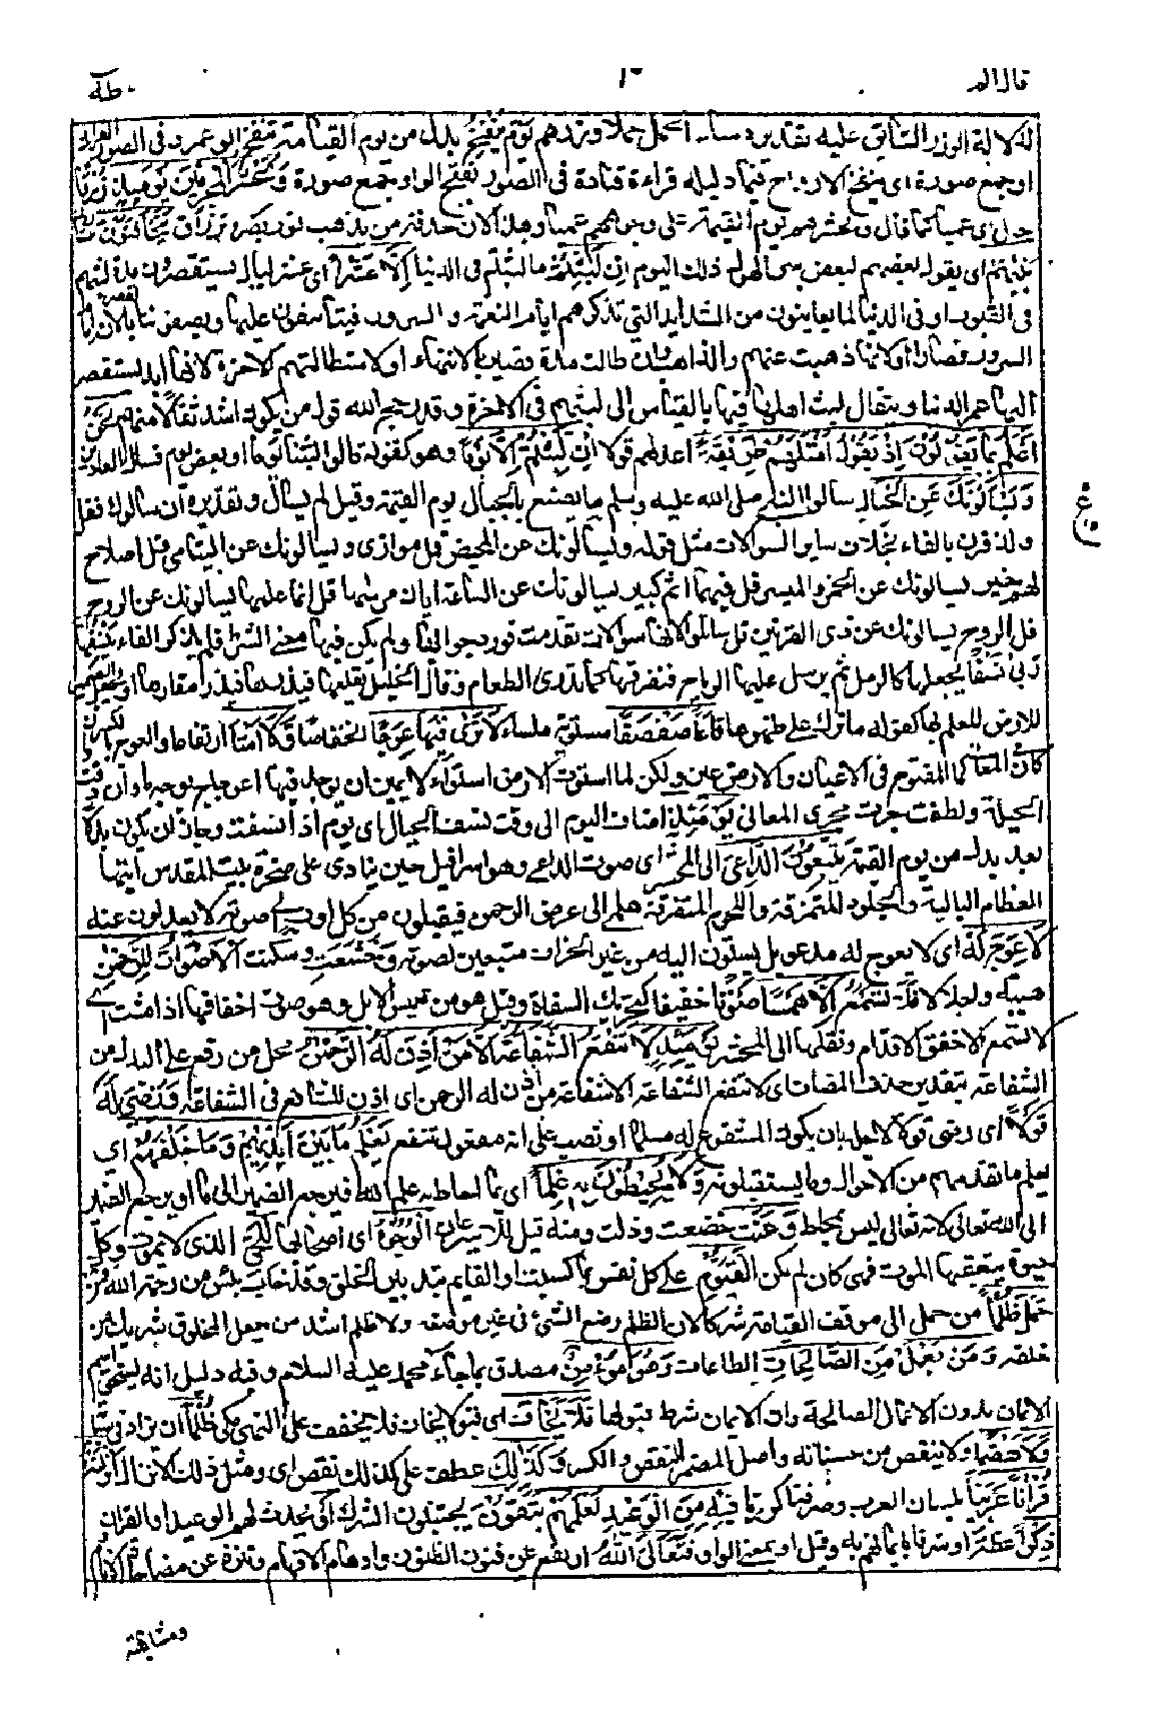 قال الم ١٠ طه
له لا لة الوزر السابق عليه تقديره ساء الحمل حملا وزرهم يوم ينفخ بدل من يوم القيامة ننفخ ابو عمرو في الصور القراءة
او جمع صورة اى ينفخ الارواح فيها دليله قراءة قتادة في الصور بفتح الواو جمع صورة ونحشر المجرمين يومئذ زرقا
حال اى عميا كما قال ونحشرهم يوم القيمة على وجوههم عميا وهذا لان حدقة من يذهب نور بصره تزراق يتخافتون
بينهم اى يقول بعضهم لبعض سرا لهول ذلك اليوم ان لبثتم ما لبثتم في الدنيا الا عشرا اى عشر ليال يستقصرون مدة لبثهم
في القبور او في الدنيا لما يعاينون من الشدايد التى تذكرهم ايام النعمة والسرور فيتأسفون عليها ويصفونها بالقصر لان ايام
السرور قصار او لانها ذهبت عنهم والذاهب وان طالت مدة قصير بالانتهاء او لاستطالتهم الآخرة لانها ابد يستقصر
اليها عمر الدنيا ويتقال لبث اهلها فيها بالقياس الى لبثهم في الآخرة وقد رجح الله قول من يكون اشد تقالا منهم نحن
اعلم بما يقولون اذ يقول امثلهم طريقة اعدلهم قولا ان لبثتم الا يوما وهو كقوله قالوا لبثنا يوما او بعض يوم فسئل العادين
ويسألونك عن الجبال سألوا النبي صلى الله عليه وسلم ما يصنع بالجبال يوم القيمة وقيل لم يسأل وتقديره ان سألوك فقل
ولذا قرن بالفاء بخلاف ساير السوالات مثل قوله ويسألونك عن المحيض قل هو اذى ويسألونك عن اليتامى قل اصلاح
لهم خير يسألونك عن الخمر والميسر قل فيهما اثم كبير يسألونك عن الساعة ايان مرسيها قل انما علمها يسألونك عن الروح
قل الروح يسألونك عن ذى القرنين قل سأتلوا لانها سوالات تقدمت فورد جوابها ولم يكن فيها معنى الشرط فلم يذكر الفاء ينسفها
ربى نسفا يجعلها كالرمل ثم يرسل عليها الرياح فتفرقها كما يذرى الطعام وقال الخليل يقلعها فيذرها فيذر مقارها او يجعل الضمير
للارض للعلم بها كقوله ما ترك على ظهرها قاعا صفصفا مستوية ملساء لا ترى فيها عوجا انخفاضا ولا امتا ارتفاعا والعوج بالكسر وان
كان في المعانى كما المفتوح في الاعيان والارض عين ولكن لما استوت الارض استواء لا يمكن ان يوجد فيها اعوجاج بوجه ما وان دقت
الحيلة ولطفت جرت مجرى المعانى يومئذ اضاف اليوم الى وقت نسف الجبال اى يوم اذ نسفت وجاز ان يكون بدلا
بعد بدل من يوم القيمة يتبعون الداعى الى المحشر اى صوت الداعى وهو اسرافيل حين ينادى على صخرة بيت المقدس ايتها
العظام البالية والجلود المتمزقة واللحوم المتفرقة هلم الى عرض الرحمن فيقبلون من كل اوب الى صوته لا يعدلون عنه
لا عوج له اى لا يعوج له مدعو بل يستوون اليه من غير انحراف متبعين لصوته وخشعت وسكنت الاصوات للرحمن
هيبة واجلالا فلا تسمع الا همسا صوتا خفيفا لتحريك الشفاه وقيل هو من هميس الابل وهو صوت اخفافها اذا مشت اى
لا تسمع الا خفق الاقدام ونقلها الى المحشر يومئذ لا تنفع الشفاعة الا من اذن له الرحمن محل من رفع على البدل من
الشفاعة بتقدير حذف المضاف اى لا تنفع الشفاعة الا شفاعة من اذن له الرحمن اى اذن للشافع في الشفاعة ورضى له
قولا اى رضى قولا لاجله بان يكون المشفوع له مسلما او نصب على انه مفعول تنفع يعلم ما بين ايديهم وما خلفهم اى
يعلم ما تقدمهم من الاحوال وما يستقبلونه ولا يحيطون به علما اى بما احاط به علم الله فيرجع الضمير الى ما او يرجع الضمير
الى الله تعالى لانه تعالى ليس بمحاط وعنت خضعت وذلت ومنه قيل للاسير عان الوجوه اى اصحابها للحى الذى لا يموت وكل
حيوة يتعقبها الموت فهى كان لم يكن القيوم على كل نفس بما كسبت او القايم بتدبير الخلق وقد خاب يئس من رحمة الله من
حمل ظلما من حمل الى موقف القيامة شركا لان الظلم وضع الشئ في غير موضعه ولا ظلم اشد من جعل المخلوق شريك من
خلقه ومن يعمل من الصالحات الطاعات وهو مؤمن مصدق بما جاء محمد عليه السلام وفيه دليل انه يستحق اسم
الايمان بدون الاعمال الصالحة وان الايمان شرط قبولها فلا يخاف اى فهو لا يخاف فلا يخف على النهى مكى ظلما ان يزاد في سيأته
ولا هضما ولا ينقص من حسناته واصل الهضم النقص والكسر وكذلك عطف على كذلك نقص اى ومثل ذلك الانزال انزلناه
قرآنا عربيا بلسان العرب وصرفنا كررنا فيه من الوعيد لعلهم يتقون يجتنبون الشرك او يحدث لهم الوعيد او القرآن
ذكرا عظة او شرفا بايمانهم به وقيل او بمعنى الواو فتعالى الله ارتفع عن فنون الظنون واوهام الافهام وتنزه عن مضاهاة الانام
ومشابهة
ع